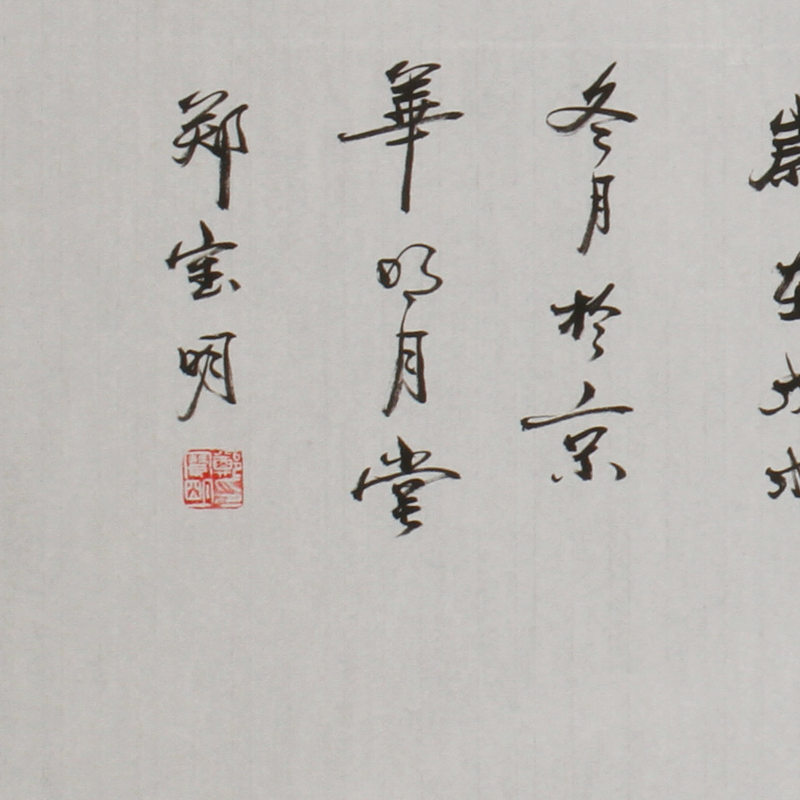 冬月於京
華明月堂
郑宝明